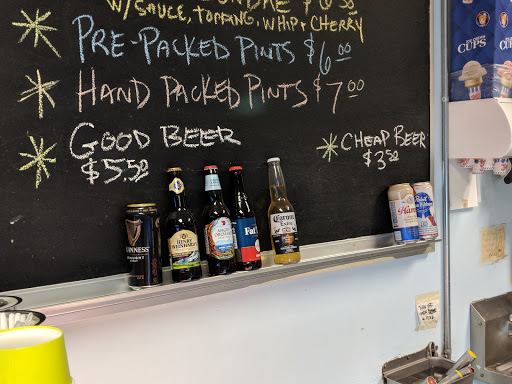 W/ SAUCE, TOPPING, WHIP + CHERRY
PRE-PACKED PINTS $6.00
HAND PACKED PINTS $7.00
GOOD BEER
$5.50
CHEAP BEER
$3.50
GUINNESS
HENRY
WEINHARD'S
Fat
Corona
Extra
Hamm's
Pabst
CUPS